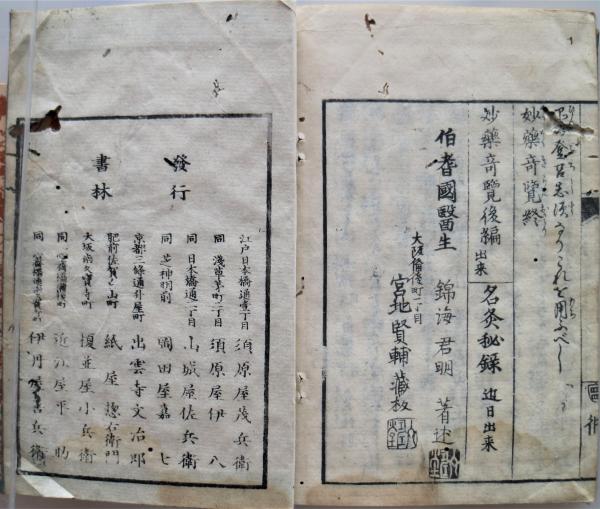 妙藥奇覽終
妙藥奇覽後編 出来 名灸秘録 近日出来
伯耆國醫生 錦海君明 著述
大阪備後町一丁目
宮地賢輔藏板
發行
書林
江戸日本橋通壹丁目 須原屋茂兵衛
同 淺草茅町二丁目 須原屋伊八
同 日本橋通二丁目 山城屋佐兵衛
同 芝神明前 岡田屋嘉七
京都三條通升屋町 出雲寺文治郎
肥前佐賀白山町 紙屋惣右衛門
大坂南久宝寺町 榎並屋小兵衛
同 心齋橋備後町 近江屋平助
同 伊丹屋善兵衛